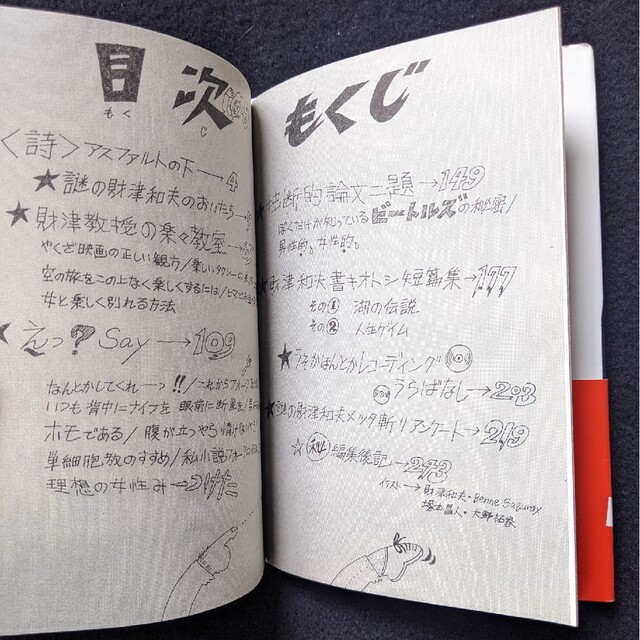 目次
もく じ
〈詩〉アスファルトの下→4
★謎の財津和夫のおいたち→
★財津教授の楽々教室→
やくざ映画の正しい観方/楽しいタクシーの
空の旅をこの上なく楽しくするには/ヒマで
女と楽しく別れる方法
★えっ?Say→109
なんとかしてくれーっ!!/これからフォーク
いつも背中にナイフを 眼前に断崖を/
ホモである/腹が立つやら情けないやら
単細胞族のすすめ/私小説フォーク
理想の女性み→
もくじ
★独断的論文二題→149
ぼくだけが知っているビートルズの秘密/
男性的。女性的。
★財津和夫書キオトシ短篇集→177
その① 湖の伝説
その② 人生ゲイム
★うそかほんとかレコーディング
うらばなし→203
★謎の財津和夫メッタ斬リアンケート→219
☆㊙編集後記→273
イラスト→財津和夫・
塚本昌人・大野拓家